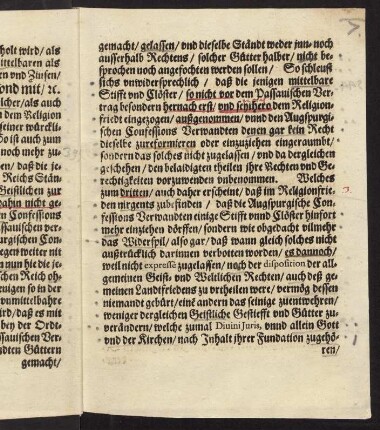 holt wird/ als
mittelbaren als
en vnd Zinsen/
ond mit/ ꝛc.
licher/ als auch
n dem Religion
einer würckli-
o ist auch zum
noch mehr zu-
en/ daß die je-
Reichs Stän-
Geistlichen zur
dahin nicht ge-
n Confessions
assauischen ver-
urgischen Con-
egen weiter nit
n nun hie die je-
chen Reich oh-
enigen so in der
vnmittelbahre
ird/ daß es mit
bey der Ordt-
assauischen Ver-
zdten Güttern
gemacht/
gemacht/ gelassen/ vnd dieselbe Ständt weder jnn- noch
ausserhalb Rechtens/ solcher Gütter halber/ nicht be-
sprochen noch angefochten werden sollen/ So schleust
sichs vnwidersprechlich/ daß die jenigen mittelbare
Stifft vnd Clöster/ so nicht vor dem Passauischen Ver-
trag besondern hernach erst/ vnd seithero dem Religion-
friedt eingezogen/ außgenommen/ vnnd den Augspurgi-
schen Confessions Verwandten denen gar kein Recht
dieselbe zureformieren oder einzuziehen eingeraumbt/
sondern das solches nicht zugelassen/ vnd da dergleichen
geschehen/ den belaidigten theilen ihr Rechten vnd Ge-
rechtigkeiten vorzuwenden vnbenommen. Welches
zum dritten/ auch daher erscheint/ daß im Religionfrie-
den nirgents zubefinden/ daß die Augspurgische Con-
fessions Verwandten einige Stifft vnnd Clöster hinfort
mehr einziehen dörffen/ sondern wie obgedacht vilmehr
das Widerspil/ also gar/ daß wann gleich solches nicht
außtrücklich darinnen verbotten worden/ es dannoch/
weil nicht expressè zugelassen/ nach der disposition der all-
gemeinen Geist- vnd Weltlichen Rechten/ auch deß ge-
meinen Landtfriedens zu vrtheilen were/ vermög dessen
niemandt gebürt/ eine andern das seinige zuentwehren/
weniger dergleichen Geistliche Gestiefft vnd Gütter zu-
verändern/ welche zumal Diuini Juris, vnnd allein Gott
vnd der Kirchen/ nach Inhalt jhrer Fundation zugehö-
ren/